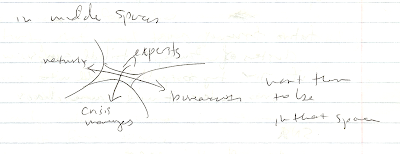 in middle spaces
experts
network
bureaucracy
crisis
manages
want them
to be
in that space